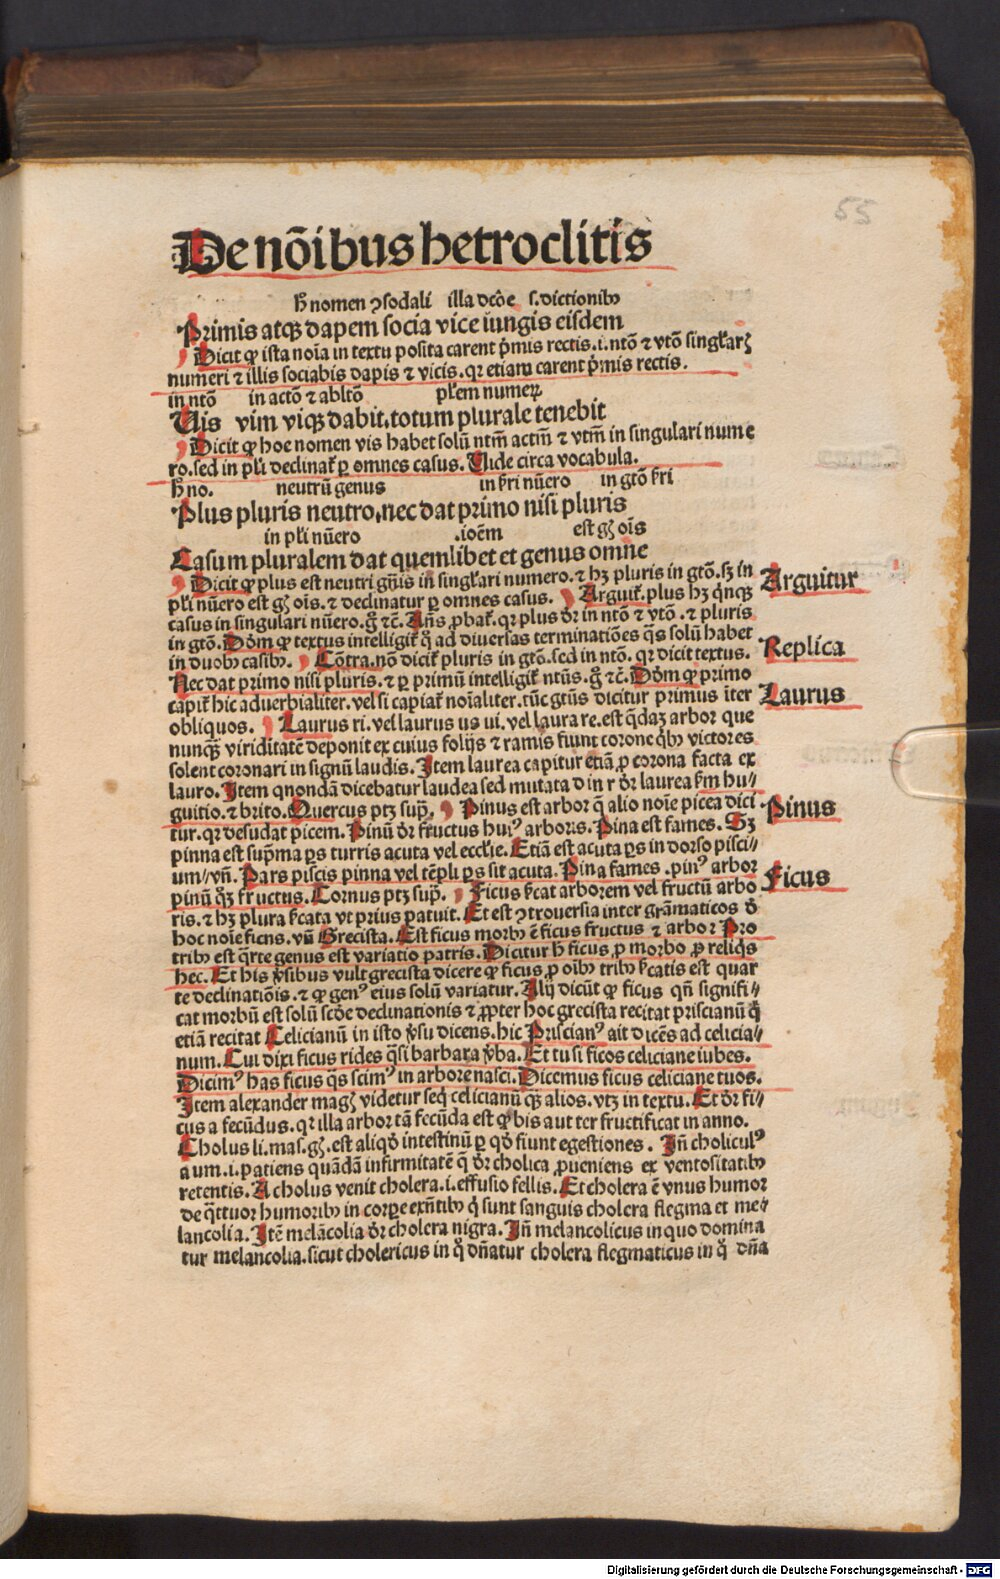 55
De nōibus hetroclitis
h̄ nomen ꝯsodali illa dcōe s. dictionibꝰ
Primis atqꝫ dapem socia vice iungis eisdem
Dicit ꝙ ista noīa in textu posita carent p̄mis rectis .i. ntō ⁊ vtō singl̄arꝫ
numeri ⁊ illis sociabis dapis ⁊ vicis. qr etiam carent p̄mis rectis.
in ntō in actō ⁊ abltō pl̄em numerꝝ
Uis vim viqꝫ dabit, totum plurale tenebit
Dicit ꝙ hoc nomen vis habet solū ntm̄ actm̄ ⁊ vtm̄ in singulari nume
ro. sed in pl̄i declinat̄ ꝑ omnes casus. Uide circa vocabula.
h̄ no. neutrū genus in s̄ri nūero in gtō s̄ri
Plus pluris neutro, nec dat primo nisi pluris
in pl̄i nūero .ioēm est gꝫ oīs
Casum pluralem dat quemlibet et genus omne
Dicit ꝙ plus est neutri gn̄is in singl̄ari numero. ⁊ hꝫ pluris in gtō. sꝫ in
pl̄i nūero est gꝫ oīs. ⁊ declinatur ꝑ omnes casus. Arguit̄. plus hꝫ q̄nqꝫ
casus in singulari nūero. g̊ ⁊c̄. Añs ꝓbat̄. qr plus d̄r in ntō ⁊ vtō. ⁊ pluris
in gtō. Dōm ꝙ textus intelligit̄ q̊ ad diuersas terminatiōes q̄s solū habet
in duobꝰ casibꝰ. Cōtra. nō dicit̄ pluris in gtō. sed in ntō. qr dicit textus.
Nec dat primo nisi pluris. ⁊ ꝑ primū intelligit̄ ntūs. g̊ ⁊c̄. Dōm ꝙ primo
capit̄ hic aduerbialiter. vel si capiat̄ noīaliter. tūc gtūs dicitur primus īter
obliquos. Laurus ri. vel laurus us ui. vel laura re. est q̄daꝫ arbor que
nunqꝫ viriditatē deponit ex cuius folijs ⁊ ramis fiunt corone q̄bꝰ victores
solent coronari in signū laudis. Item laurea capitur etiā ꝓ corona facta ex
lauro. Item qnondā dicebatur laudea sed mutata d in r d̄r laurea s̄m hu⸗
guitio. ⁊ brito. Quercus ptꝫ sup̄. Pinus est arbor q̄ alio noīe picea dici
tur. qr desudat picem. Pinū d̄r fructus huiꝰ arboris. Pina est fames. Sꝫ
pinna est sup̄ma ꝑs turris acuta vel eccl̄ie. Etiā est acuta ꝑs in dorso pisci⸗
um⸗ vn̄. Pars piscis pinna vel tēpli ꝑs sit acuta. Pina fames. pinꝰ arbor
pinū qꝫ fructus. Cornus ptꝫ sup̄. Ficus s̄cat arborem vel fructū arbo
ris. ⁊ hꝫ plura s̄cata vt prius patuit. Et est ꝯtrouersia inter grāmaticos d̄
hoc noīe ficus. vn̄ Grecista. Est ficus morbꝰ ē ficus fructus ⁊ arbor Pro
tribꝰ est q̄rte genus est variatio patris. Dicitur h̄ ficus ꝓ morbo ꝓ reliq̄s
hec. Et his v̄sibus vult grecista dicere ꝙ ficus ꝓ oībꝰ tribꝰ s̄catis est quar
te declinatiōis. ⁊ ꝙ genꝰ eius solū variatur. Alij dicūt ꝙ ficus qn̄ signifi⸗
cat morbū est solū scōe declinationis ⁊ ꝓpter hoc grecista recitat priscianū q̊
etiā recitat Celicianū in isto v̄su dicens. hic Priscianꝰ ait dicēs ad celicia⸗
num. Cui dixi ficus rides q̄si barbara v̄ba. Et tu si ficos celiciane iubes.
Dicimꝰ has ficus q̄s scimꝰ in arbore nasci. Dicemus ficus celiciane tuos.
Item alexander magꝫ videtur seq̄ celicianū qꝫ alios. vtꝫ in textu. Et d̄r fi⸗
cus a fecūdus. qr illa arbor tā fecūda est ꝙ bis aut ter fructificat in anno.
Cholus li. mas. gꝫ. est aliqd̄ intestinū ꝑ qd̄ fiunt egestiones. In̄ choliculꝰ
a um .i. patiens quādā infirmitatē q̄ d̄r cholica ꝓueniens ex ventositatibꝰ
retentis. A cholus venit cholera .i. effusio fellis. Et cholera ē vnus humor
de q̄ttuor humoribꝰ in corꝑe exn̄tibꝰ q̊ sunt sanguis cholera flegma et me⸗
lancolia. Itē melācolia d̄r cholera nigra. In̄ melancolicus in quo domina
tur melancolia. sicut cholericus in q̊ dn̄atur cholera flegmaticus in q̊ dn̄a
Arguitur
Replica
Laurus
Pinus
Ficus
Digitalisierung gefördert durch die Deutsche Forschungsgemeinschaft - DFG